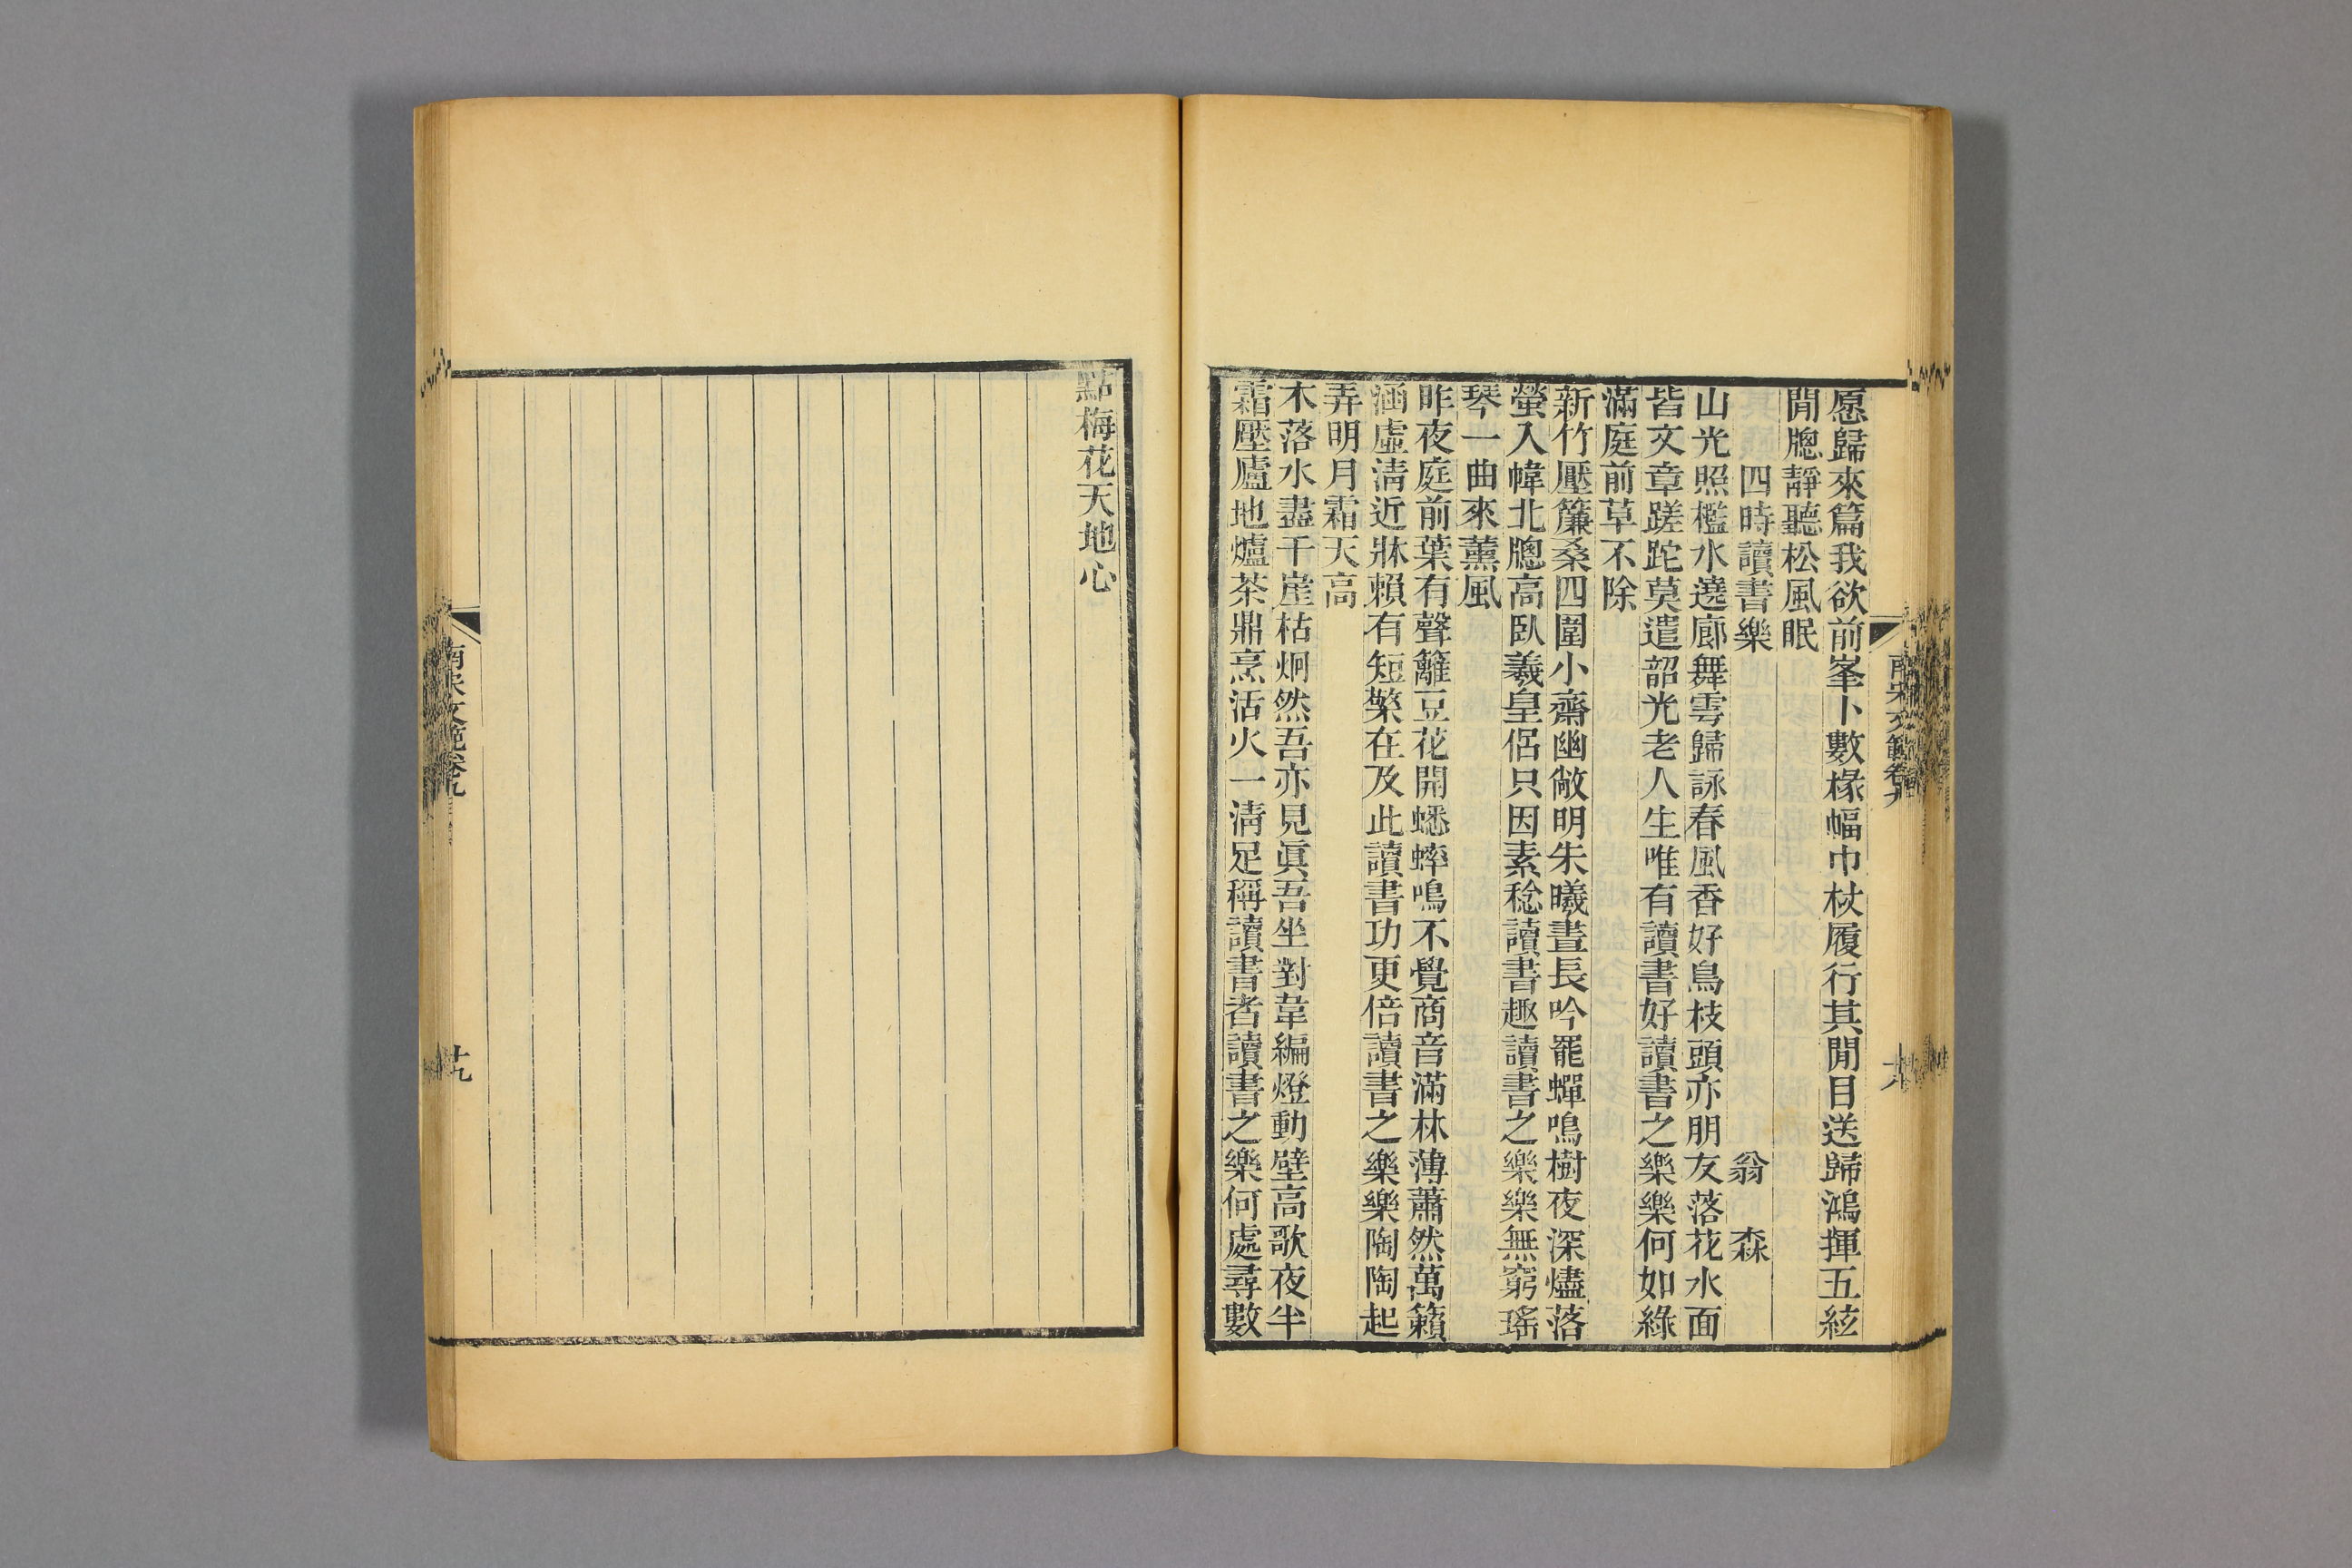 愿歸來篇我欲前峯卜數椽幅巾杖履行其閒目送歸鴻揮五絃
閒牕靜聽松風眠
四時讀書樂 翁森
山光照檻水遶廊舞雩歸詠春風香好鳥枝頭亦朋友落花水面
皆文章蹉跎莫遣韶光老人生唯有讀書好讀書之樂樂何如綠
滿庭前草不除
新竹壓簾桑四圍小齋幽敞明朱曦晝長吟罷蟬鳴樹夜深燼落
螢入幃北牕高臥羲皇侶只因素稔讀書趣讀書之樂樂無窮瑤
琴一曲來薰風
昨夜庭前葉有聲籬豆花開蟋蟀鳴不覺商音滿林薄蕭然萬籟
涵虛淸近牀賴有短檠在及此讀書功更倍讀書之樂樂陶陶起
弄明月霜天高
木落水盡千崖枯炯然吾亦見眞吾坐對韋編燈動壁高歌夜半
霜壓廬地爐茶鼎烹活火一淸足稱讀書者讀書之樂何處尋數
南宋文範卷九
點梅花天地心
南宋文範卷九